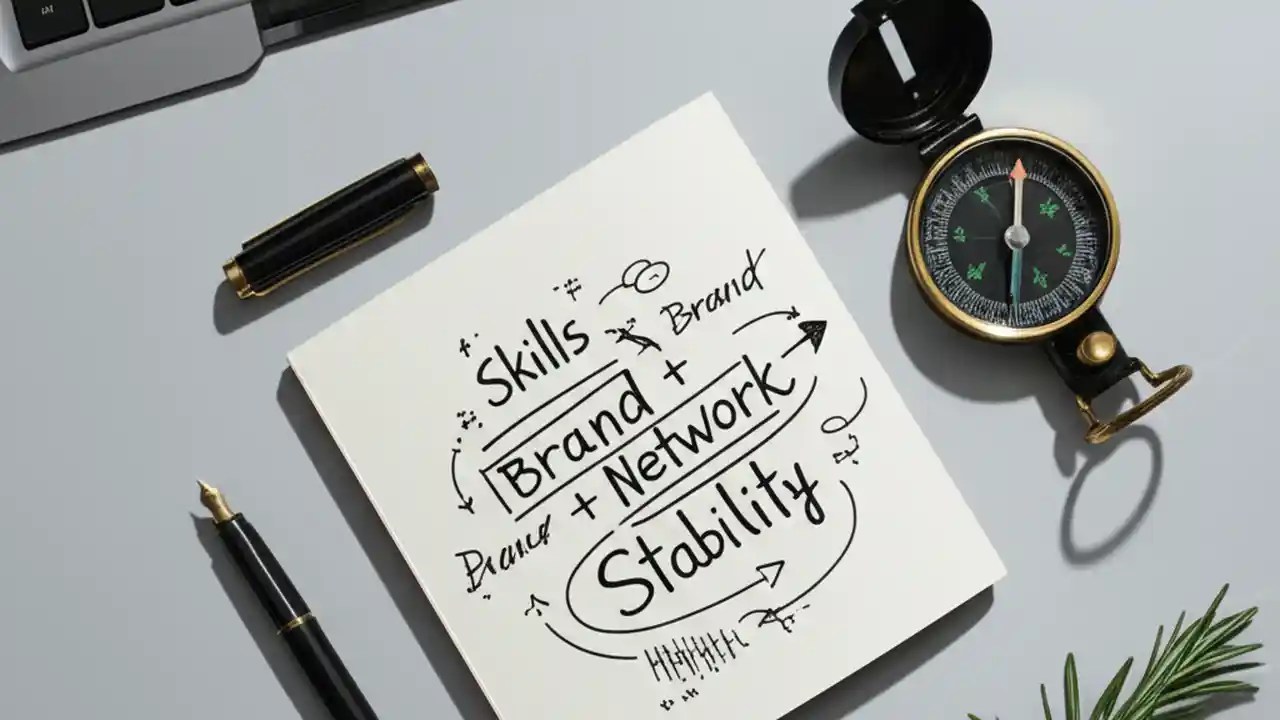 Skills
Brand
Brand +
+ Network
Stability